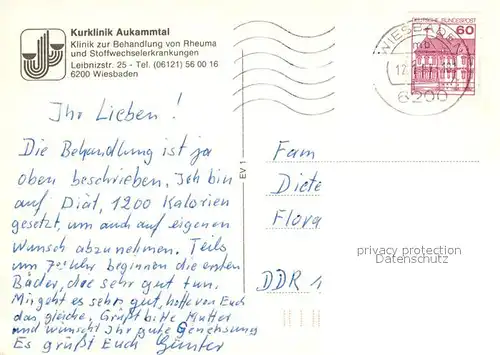 Kurklinik Aukammtal
Klinik zur Behandlung von Rheuma
und Stoffwechselerkrankungen
Leibnizstr. 25 - Tel. (06121) 56 00 16
6200 Wiesbaden
DEUTSCHE BUNDESPOST
60
WIESBADEN
6200
Ihr Lieben!
Die Behandlung ist ja
oben beschrieben. Ich bin
auf Diät, 1200 Kalorien
gesetzt, um auch auf eigenen
Wunsch abzunehmen. Teils
um 7 Uhr beginnen die ersten
Bäder, die sehr gut tun.
Mir geht es sehr gut, hoffe von Euch
das gleiche. Grüßt bitte Mutter
und wünscht Ihr gute Genehsung
Es grüßt Euch Günter
EV 1
Fam
Diete
Flora
DDR 1
privacy protection
Datenschutz